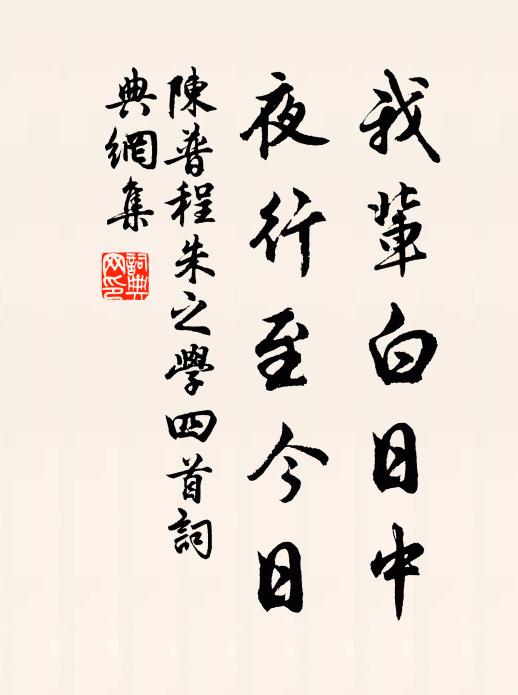 我輩白日中
夜行至今日
陳普程朱之學四首詞
典網集
詞典
网印